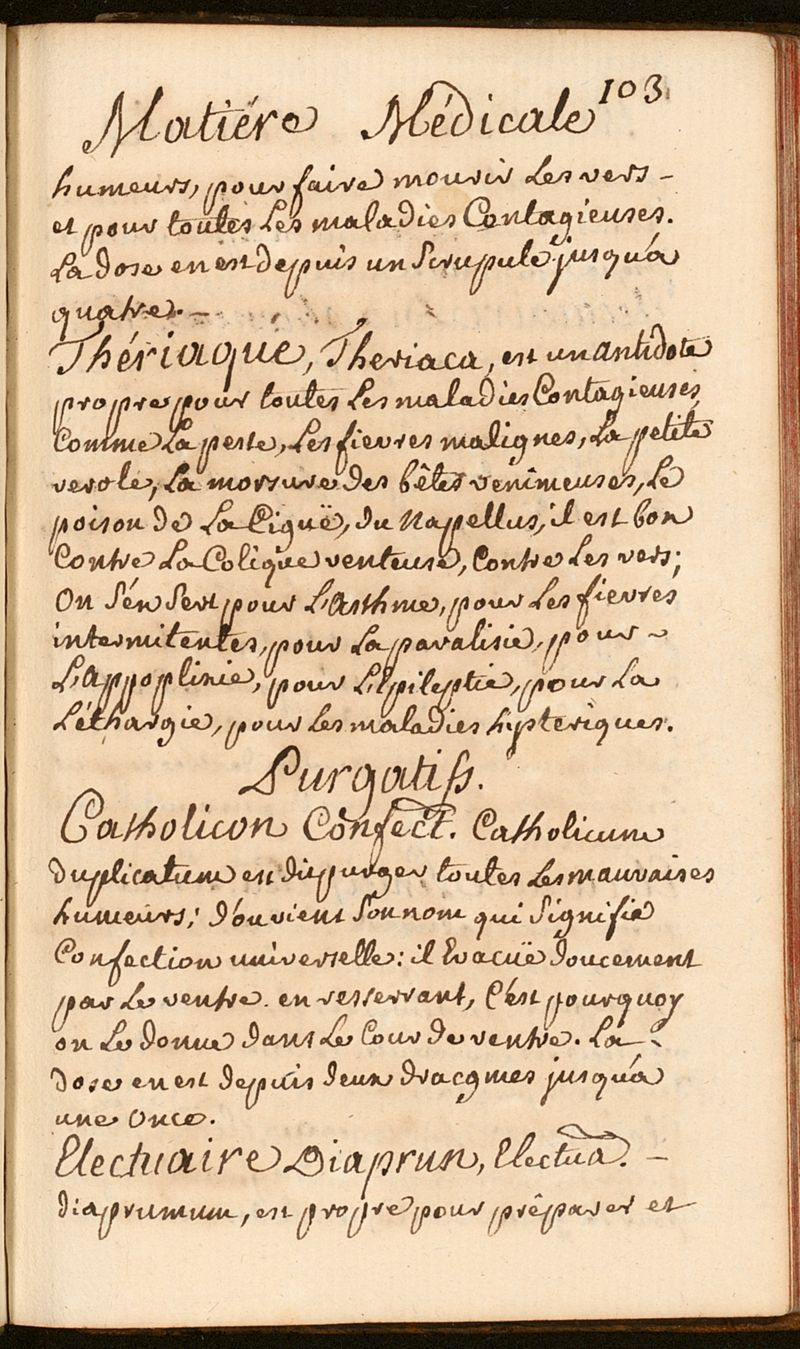 103
Matiére Médicale
humeurs, pour faire mourir Les vers -
et pour toutes Les maladies Contagieuses.
La dose en est depuis un Scrupule jusqu'a
quatre. -
Thériaque, Theriaca, est un antidote
propre pour toutes Les maladies Contagieuses
Comme La peste, Les fievres malignes, La petite
verole, La morsure des bêtes venimeuses, Le
poison de La Ciguë, du Napellus, il est bon
Contre La Colique venteuse, Contre Les vers;
On s'en Sert pour L'Asthme, pour Les fievres
intermitentes, pour La paralisie, pour ~
L'Appoplixie, pour L'Epileptie, pour La
Léthargie, pour Les maladies hysteriques.
Purgatifs.
Catholicon Confect. Catholicum
duplicatum est dit purger toutes Les mauvaises
humeurs; d'ou vient Son nom qui Signifie
Confection universelle: il Evacüe doucement
par Le ventre. en resserrant, C'est pourquoy
on Le donne dans Le Cour de ventre. La -
dose en est depuis deux dracgmes jusqu'a
une Once.
Electuaire Diaprun, Electua. -
diaprumum, est propre pour préparer et